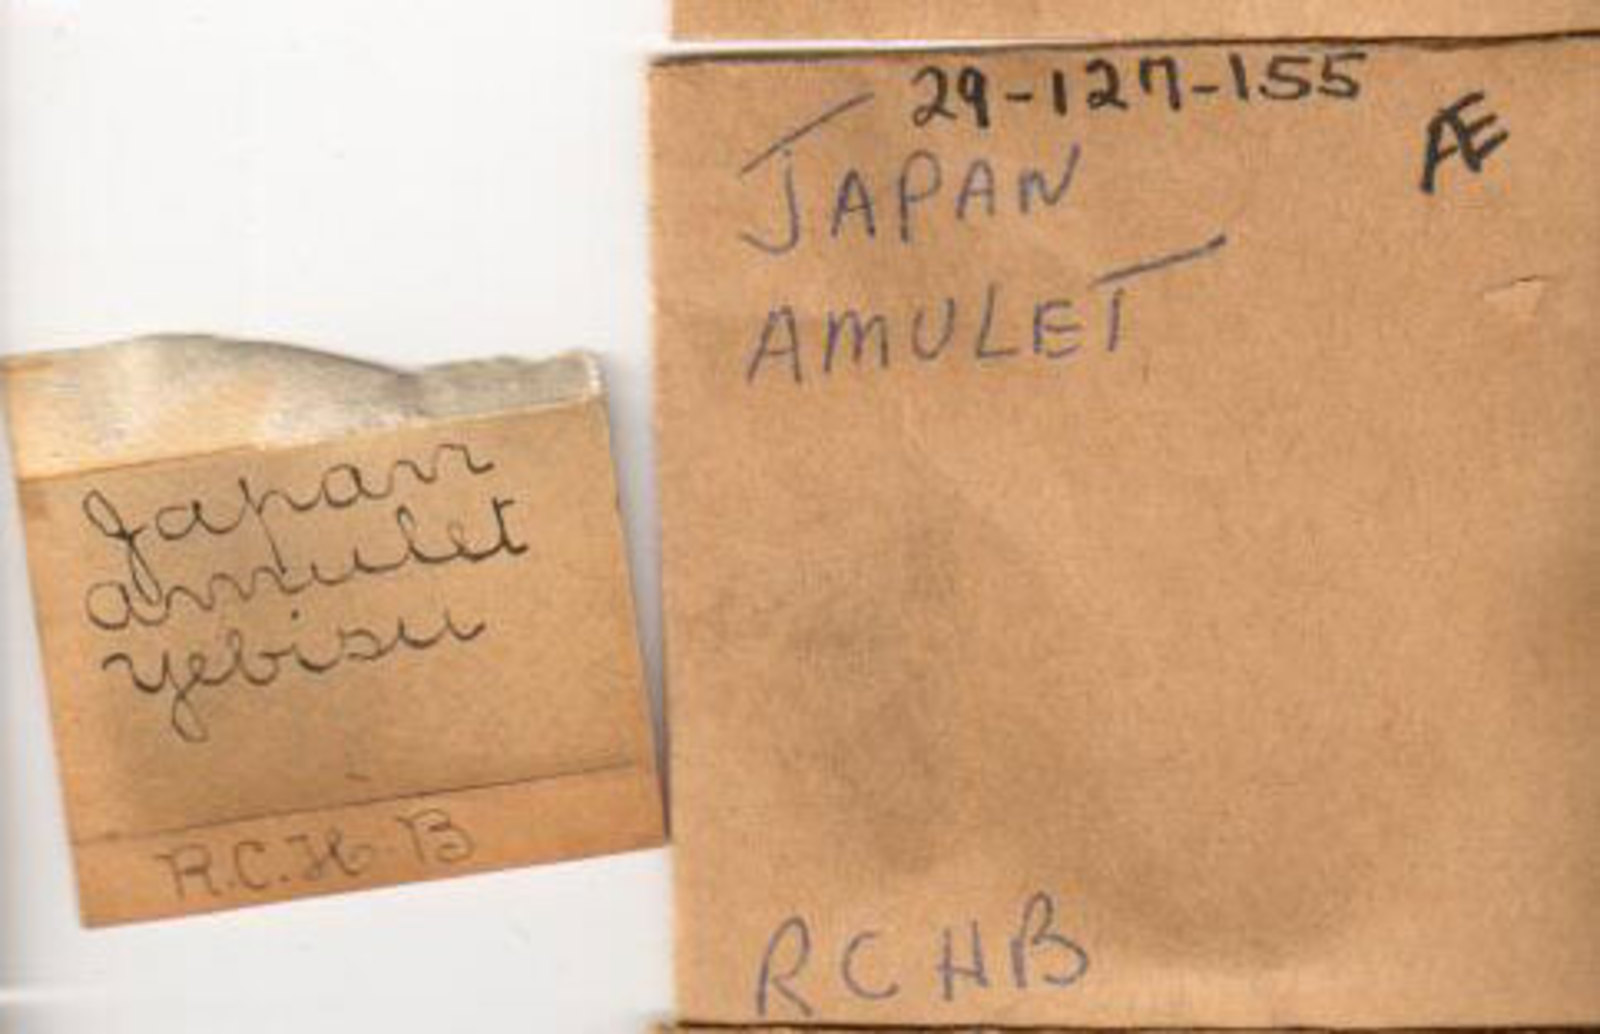 Japan
amulet
Yebisu
R.C.H.B
29-127-155
Æ
JAPAN
AMULET
RCHB